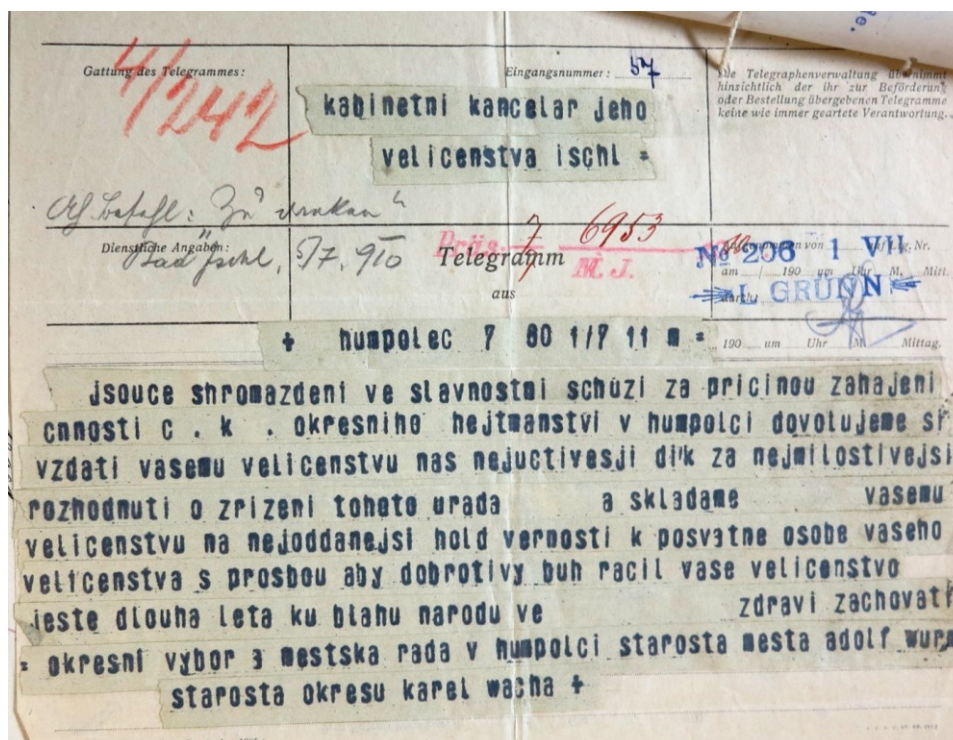 Gattung des Telegrammes:
4/242
Eingangsnummer: 57
Die Telegraphenverwaltung übernimmt
hinsichtlich der ihr zur Beförderung
oder Bestellung übergebenen Telegramme
keine wie immer geartete Verantwortung.
kabinetni kancelar jeho
velicenstva ischl =
Zu danken"
Dienstliche Angaben:
Bad Ischl, 5/7. 910
Präs. 7/7 6953
M. J.
Telegramm
aus
No 206 1 VII
am / 190 um Uhr M. Mitt.
L GRÜNN
190 um Uhr M. Mittag.
+ humpolec 7 60 1/7 11 m =
jsouce shromazdeni ve slavnostni schuzi za pricinou zahajeni
cnnosti c . k . okresniho hejtmanstvi v humpolci dovolujeme si
vzdati vasemu velicenstvu nas nejuctivesji di'k za nejmilostivejsi
rozhodnuti o zrizeni tohoto urada a skladame vasemu
velicenstvu na nejoddanejsi hold vernosti k posvatne osobe vaseho
velicenstva s prosbou aby dobrotivy buh racil vase velicenstvo
jeste dlouha leta ku blahu narodu ve zdravi zachovati
= okresni vybor a mestska rada v humpolci starosta mesta adolf wurm
starosta okresu karel wacha +